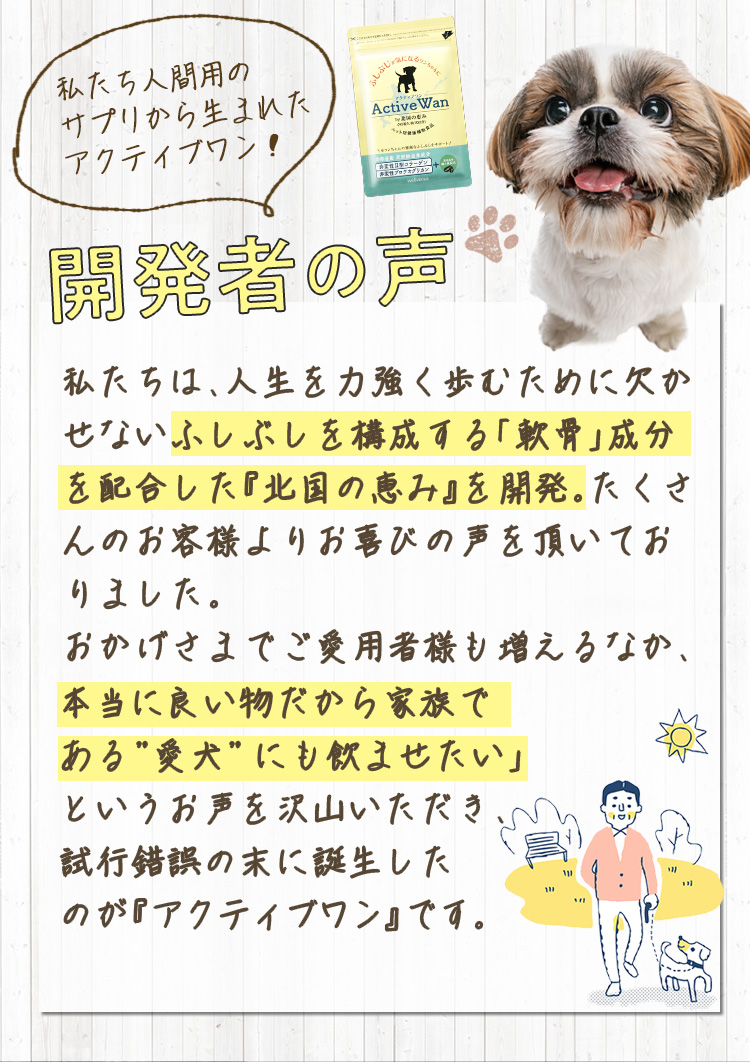 私たち人間用の
サプリから生まれた
アクティブワン！
ふしぶしが気になるワンちゃんに
ActiveWan
by 北国の恵み
ペット用健康補助食品
非変性Ⅱ型コラーゲン
非変性プロテオグリカン
開発者の声
私たちは、人生を力強く歩むために欠か
せないふしぶしを構成する「軟骨」成分
を配合した『北国の恵み』を開発。たくさ
んのお客様よりお喜びの声を頂いてお
りました。
おかげさまでご愛用者様も増えるなか、
本当に良い物だから家族で
ある"愛犬"にも飲ませたい」
というお声を沢山いただき、
試行錯誤の末に誕生した
のが『アクティブワン』です。